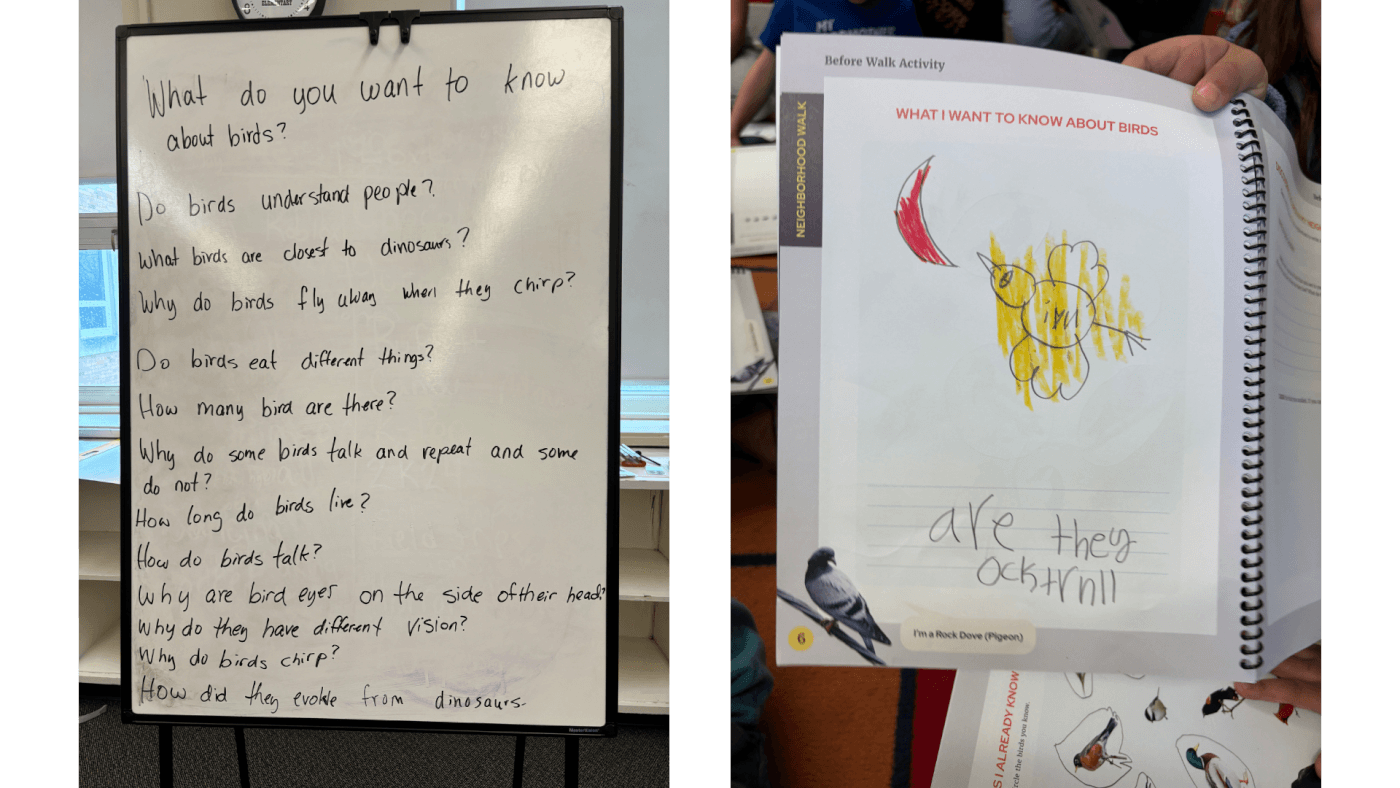 ELEMENTARY
What do you want to know
about birds?
Do birds understand people?
What birds are closest to dinosaurs?
Why do birds fly away when they chirp?
Do birds eat different things?
How many bird are there?
Why do some birds talk and repeat and some
do not?
How long do birds live?
How do birds talk?
Why are bird eyes on the side of their head?
Why do they have different vision?
Why do birds chirp?
How did they evolve from dinosaurs.
MY
Before Walk Activity
NEIGHBORHOOD WALK
WHAT I WANT TO KNOW ABOUT BIRDS
are they
ocktrnll
I'm a Rock Dove (Pigeon)
6
S I ALREADY KNOW
rcle the birds you know.